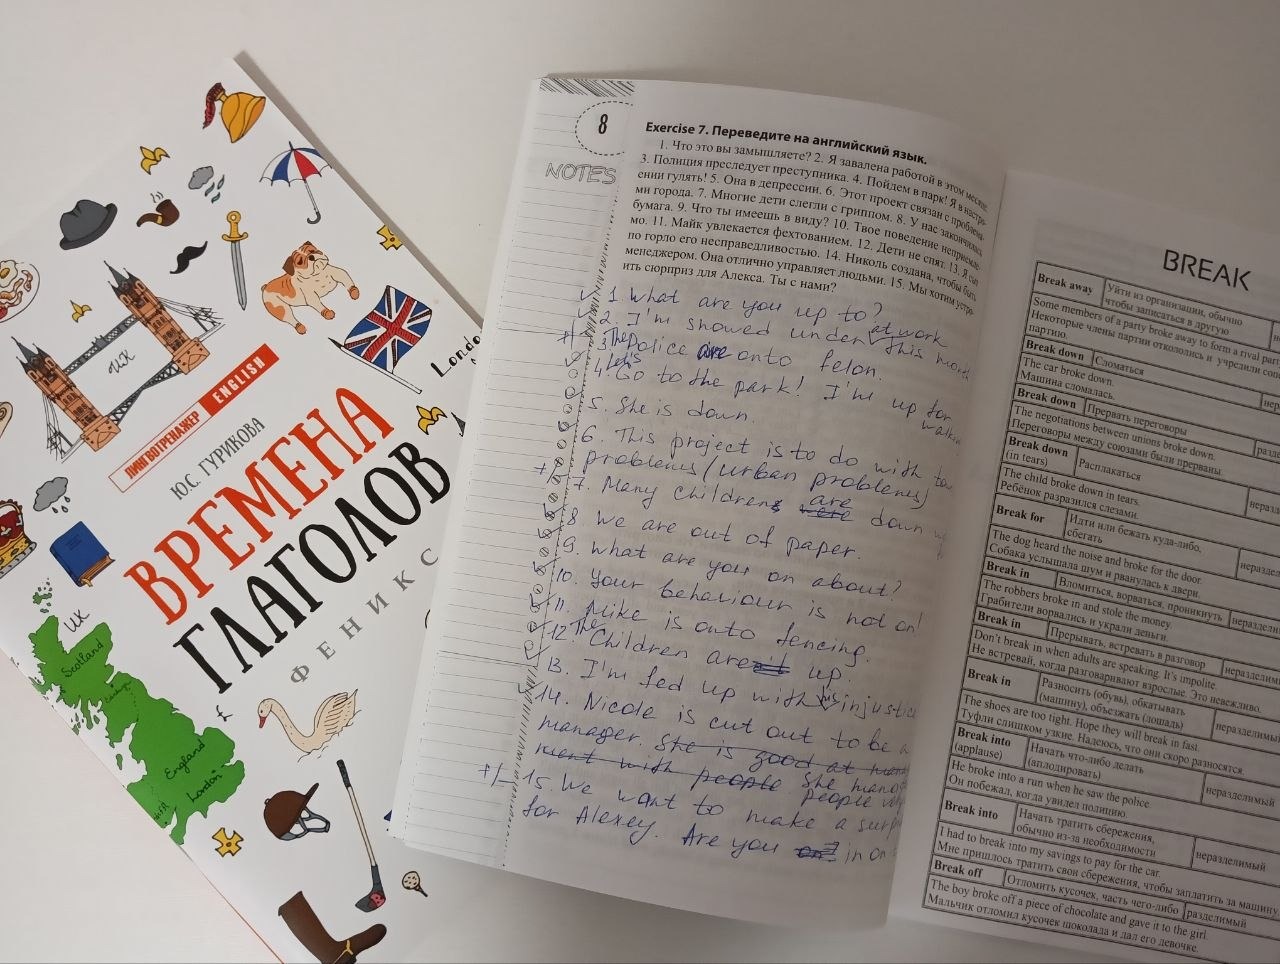 UK
London
ЛИНГВОТРЕНАЖЕР ENGLISH
Ю.С. ГУРИКОВА
ВРЕМЕНА
ГЛАГОЛОВ
ФЕНИКС
UK
Scotland
England
London
£
8
NOTES
Exercise 7. Переведите на английский язык.
1. Что это вы замышляете? 2. Я завалена работой в этом месяце.
3. Полиция преследует преступника. 4. Пойдем в парк! Я в настро-
ении гулять! 5. Она в депрессии. 6. Этот проект связан с проблема-
ми города. 7. Многие дети слегли с гриппом. 8. У нас закончилась
бумага. 9. Что ты имеешь в виду? 10. Твое поведение неприемле-
мо. 11. Майк увлекается фехтованием. 12. Дети не спят. 13. Я сыт
по горло его несправедливостью. 14. Николь создана, чтобы быть
менеджером. Она отлично управляет людьми. 15. Мы хотим устро-
ить сюрприз для Алекса. Ты с нами?
1. What are you up to?
2. I'm showed under at work this month
3. The Police are onto felon.
4. Let's Go to the park! I'm up for
walking
5. She is down.
6. This project is to do with
problems (urban problems)
7. Many childrens are down
8. We are out of paper.
9. What are you on about?
10. Your behaviour is not on!
11. Mike is onto fencing.
12. The Children are up.
13. I'm fed up with his injustice
14. Nicole is cut out to be a
manager. She is good at
ment with people She
people
15. We want to make a
for Alexey. Are you in on
BREAK
Break away Уйти из организации, обычно
чтобы записаться в другую
Some members of a party broke away to form a rival
Некоторые члены партии откололись и учредили
партию.
Break down Сломаться
The car broke down.
Машина сломалась.
Break down Прервать переговоры
The negotiations between unions broke down.
Переговоры между союзами были прерваны.
Break down
(in tears) Расплакаться
The child broke down in tears.
Ребёнок разразился слезами.
Break for Идти или бежать куда-либо,
сбегать
The dog heard the noise and broke for the door.
Собака услышала шум и рванулась к двери.
Break in Вломиться, ворваться, проникнуть
The robbers broke in and stole the money.
Грабители ворвались и украли деньги.
Break in Прерывать, встревать в разговор
Don't break in when adults are speaking. It's impolite.
Не встревай, когда разговаривают взрослые. Это невежливо.
Break in Разносить (обувь), обкатывать
(машину), объезжать (лошадь)
The shoes are too tight. Hope they will break in fast.
Туфли слишком узкие. Надеюсь, что они скоро разносятся.
Break into
(applause) Начать что-либо делать
(аплодировать) неразделимый
He broke into a run when he saw the police.
Он побежал, когда увидел полицию.
Break into Начать тратить сбережения,
обычно из-за необходимости неразделимый
I had to break into my savings to pay for the car.
Мне пришлось тратить свои сбережения, чтобы заплатить за машину.
Break off Отломить кусочек, часть чего-либо разделимый
The boy broke off a piece of chocolate and gave it to the girl.
Мальчик отломил кусочек шоколада и дал его девочке.